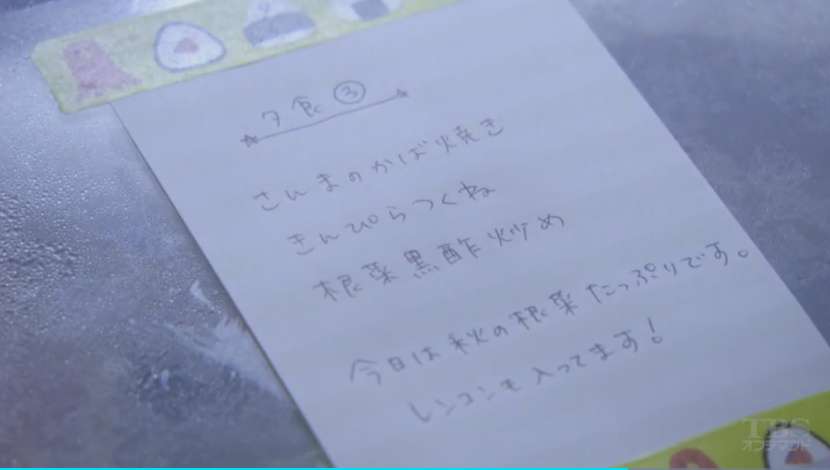 夕食③
さんまのかば焼き
きんぴらつくね
根菜黒酢炒め
今日は秋の根菜たっぷりです。
レンコンも入ってます!
TBS
オンデマンド